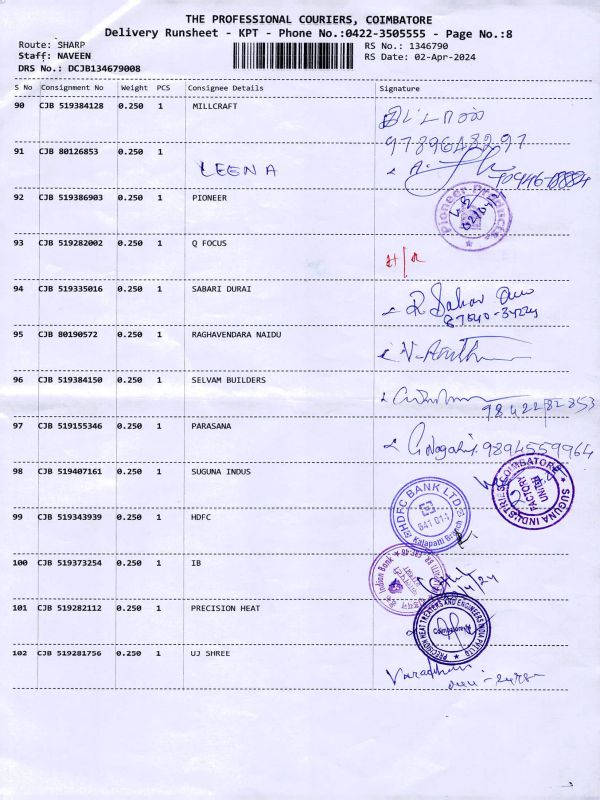 THE PROFESSIONAL COURIERS, COIMBATORE
Delivery Runsheet - KPT - Phone No.:0422-3505555 - Page No.:8
Route: SHARP
RS No.: 1346790
Staff: NAVEEN
RS Date: 02-Apr-2024
DRS No.: DCJB134679008
S No Consignment No Weight PCS Consignee Details Signature
90 CJB 519384128 0.250 1 MILLCRAFT
9789648297
91 CJB 80126853 0.250 1
LEENA
92 CJB 519386903 0.250 1 PIONEER
Pioneer Products
93 CJB 519282002 0.250 1 Q FOCUS
94 CJB 519335016 0.250 1 SABARI DURAI
95 CJB 80190572 0.250 1 RAGHAVENDARA NAIDU
96 CJB 519384150 0.250 1 SELVAM BUILDERS
9842282853
97 CJB 519155346 0.250 1 PARASANA
9894559964
98 CJB 519407161 0.250 1 SUGUNA INDUS
SUGUNA INDUSTRIES COIMBATORE
FACTORY
UNIT
99 CJB 519343939 0.250 1 HDFC
HDFC BANK LTD
Kalapatti Branch
100 CJB 519373254 0.250 1 IB
Indian Bank
101 CJB 519282112 0.250 1 PRECISION HEAT
PRECISION HEAT TREATERS AND ENGINEERS INDIA PVT LTD
Coimbatore
102 CJB 519281756 0.250 1 UJ SHREE